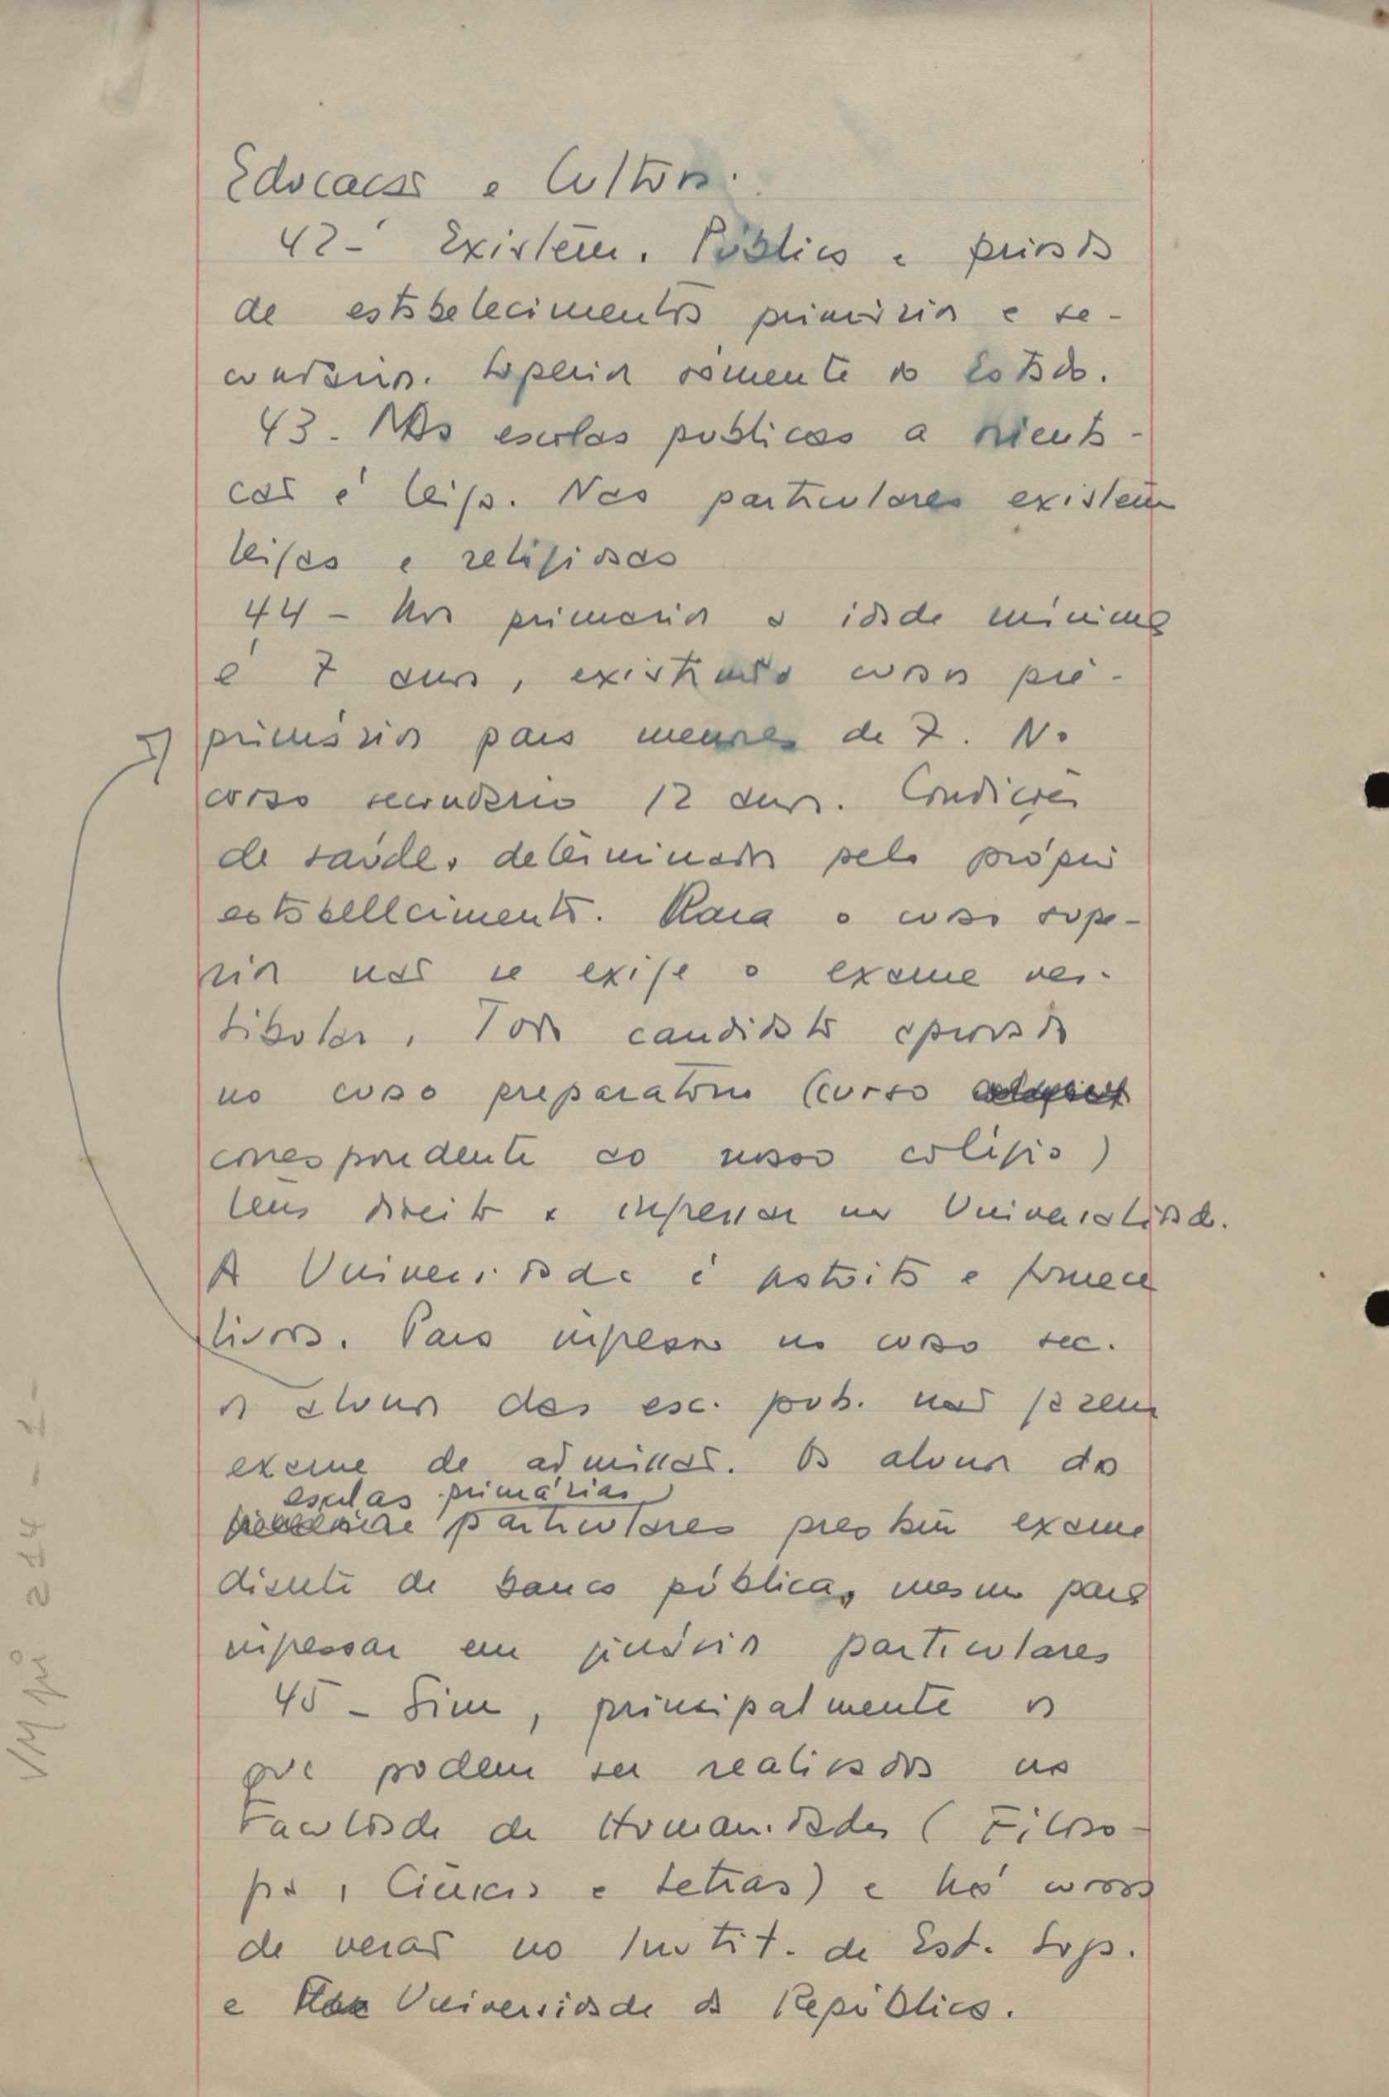 Educação e Cultura.
42- Existem. Públicos e privados
de estabelecimentos primários e se-
cundários. Superior somente o do Estado.
43. Nas escolas publicas a orienta-
ção é leiga. Nas particulares existem
leigas e religiosas
44 - Nos primarios a idade mínima
é 7 anos, existindo cursos pré-
primários para menores de 7. No
curso secundario 12 anos. Condições
de saúde, determinadas pelo próprio
estabelecimento. Para o curso supe-
rior não se exige o exame ves-
tibular. Todo candidato aprovado
no curso preparatorio (curso
correspondente ao nosso colégio)
tem direito a ingressar na Universidade.
A Universidade é gratuita e fornece
livros. Para ingresso no curso sec.
os alunos das esc. pub. não fazem
exame de admissão. Os alunos das
escolas primárias
particulares prestam exame
diante de banca pública, mesmo para
ingressar em ginásios particulares
45 - Sim, principalmente os
que podem ser realizados na
Faculdade de Humanidades (Filoso-
fia, Ciências e Letras) e há cursos
de verão no Instit. de Est. Sup.
e Universidade da República.